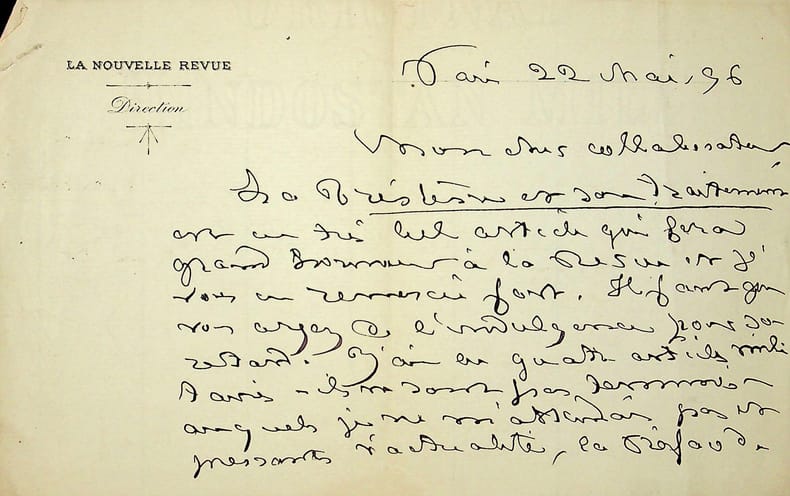 LA NOUVELLE REVUE
Direction
Paris 22 Mai 96
Mon cher collaborateur
La et son traitement
est un très bel article qui fera
grand honneur à la Revue et je
vous en remercie fort. Il faut que
vous ayez de l'indulgence pour son
retard. J'ai eu quatre articles
ils ne sont pas
auxquels je ne m'attendais pas et
pressants d'actualité, la Préface de